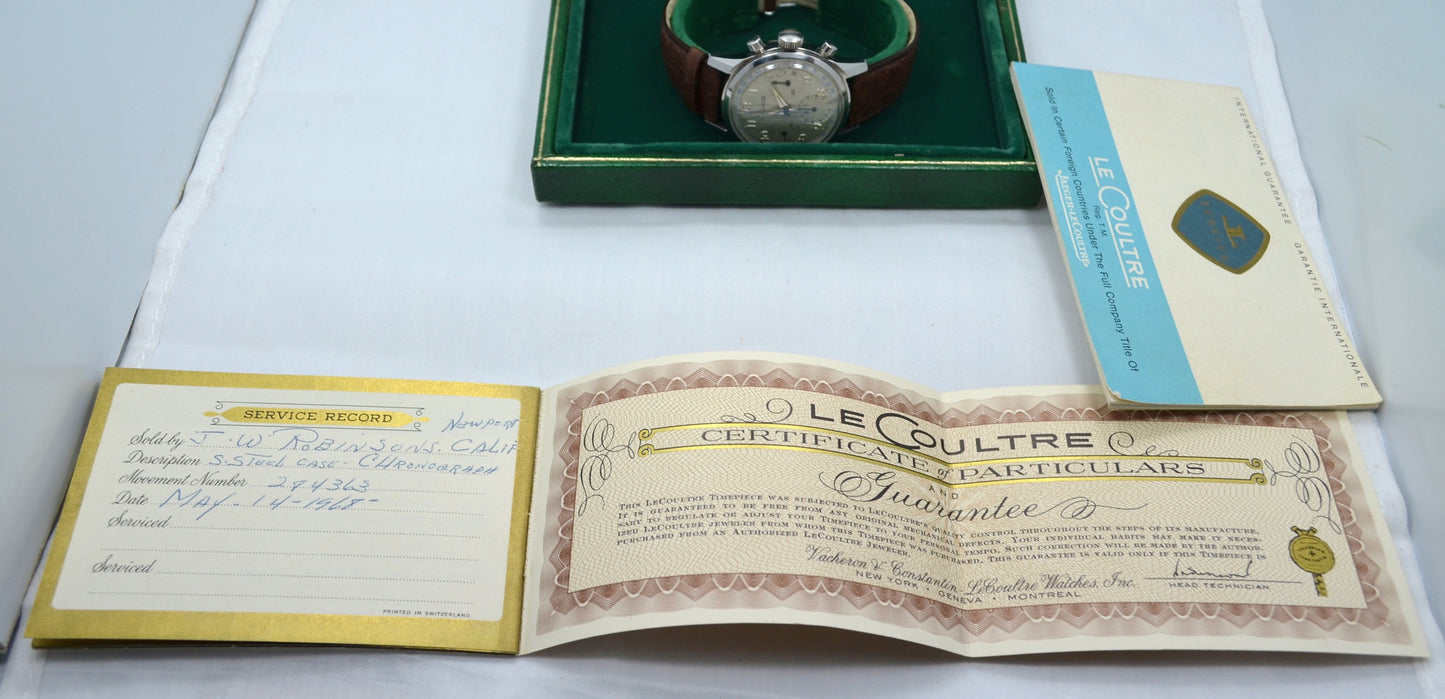 INTERNATIONAL GUARANTEE GARANTIE INTERNATIONALE
LECOULTRE
Reg. T.M.
Sold In Certain Foreign Countries Under The Full Company Title Of
JAEGER-LECOULTRE
SERVICE RECORD
NEWPORT
Sold by J. W. ROBINSONS. CALIF
Description S. STEEL CASE - CHRONOGRAPH
Movement Number 294363
Date MAY - 14 - 1968 -
Serviced
Serviced
PRINTED IN SWITZERLAND
LECOULTRE
CERTIFICATE of PARTICULARS
AND
Guarantee
THIS LECOULTRE TIMEPIECE WAS SUBJECTED TO LECOULTRE'S QUALITY CONTROL THROUGHOUT THE STEPS OF ITS MANUFACTURE.
IT IS GUARANTEED TO BE FREE FROM ANY ORIGINAL MECHANICAL DEFECTS. YOUR INDIVIDUAL HABITS MAY MAKE IT NECES-
SARY TO REGULATE OR ADJUST YOUR TIMEPIECE TO YOUR PERSONAL TEMPO. SUCH CORRECTION WILL BE MADE BY THE AUTHOR-
IZED LECOULTRE JEWELER FROM WHOM THIS TIMEPIECE WAS PURCHASED. THIS GUARANTEE IS VALID ONLY IF THIS TIMEPIECE IS
PURCHASED FROM AN AUTHORIZED LECOULTRE JEWELER.
Vacheron & Constantin-LeCoultre Watches, Inc.
NEW YORK · GENEVA · MONTREAL
HEAD TECHNICIAN